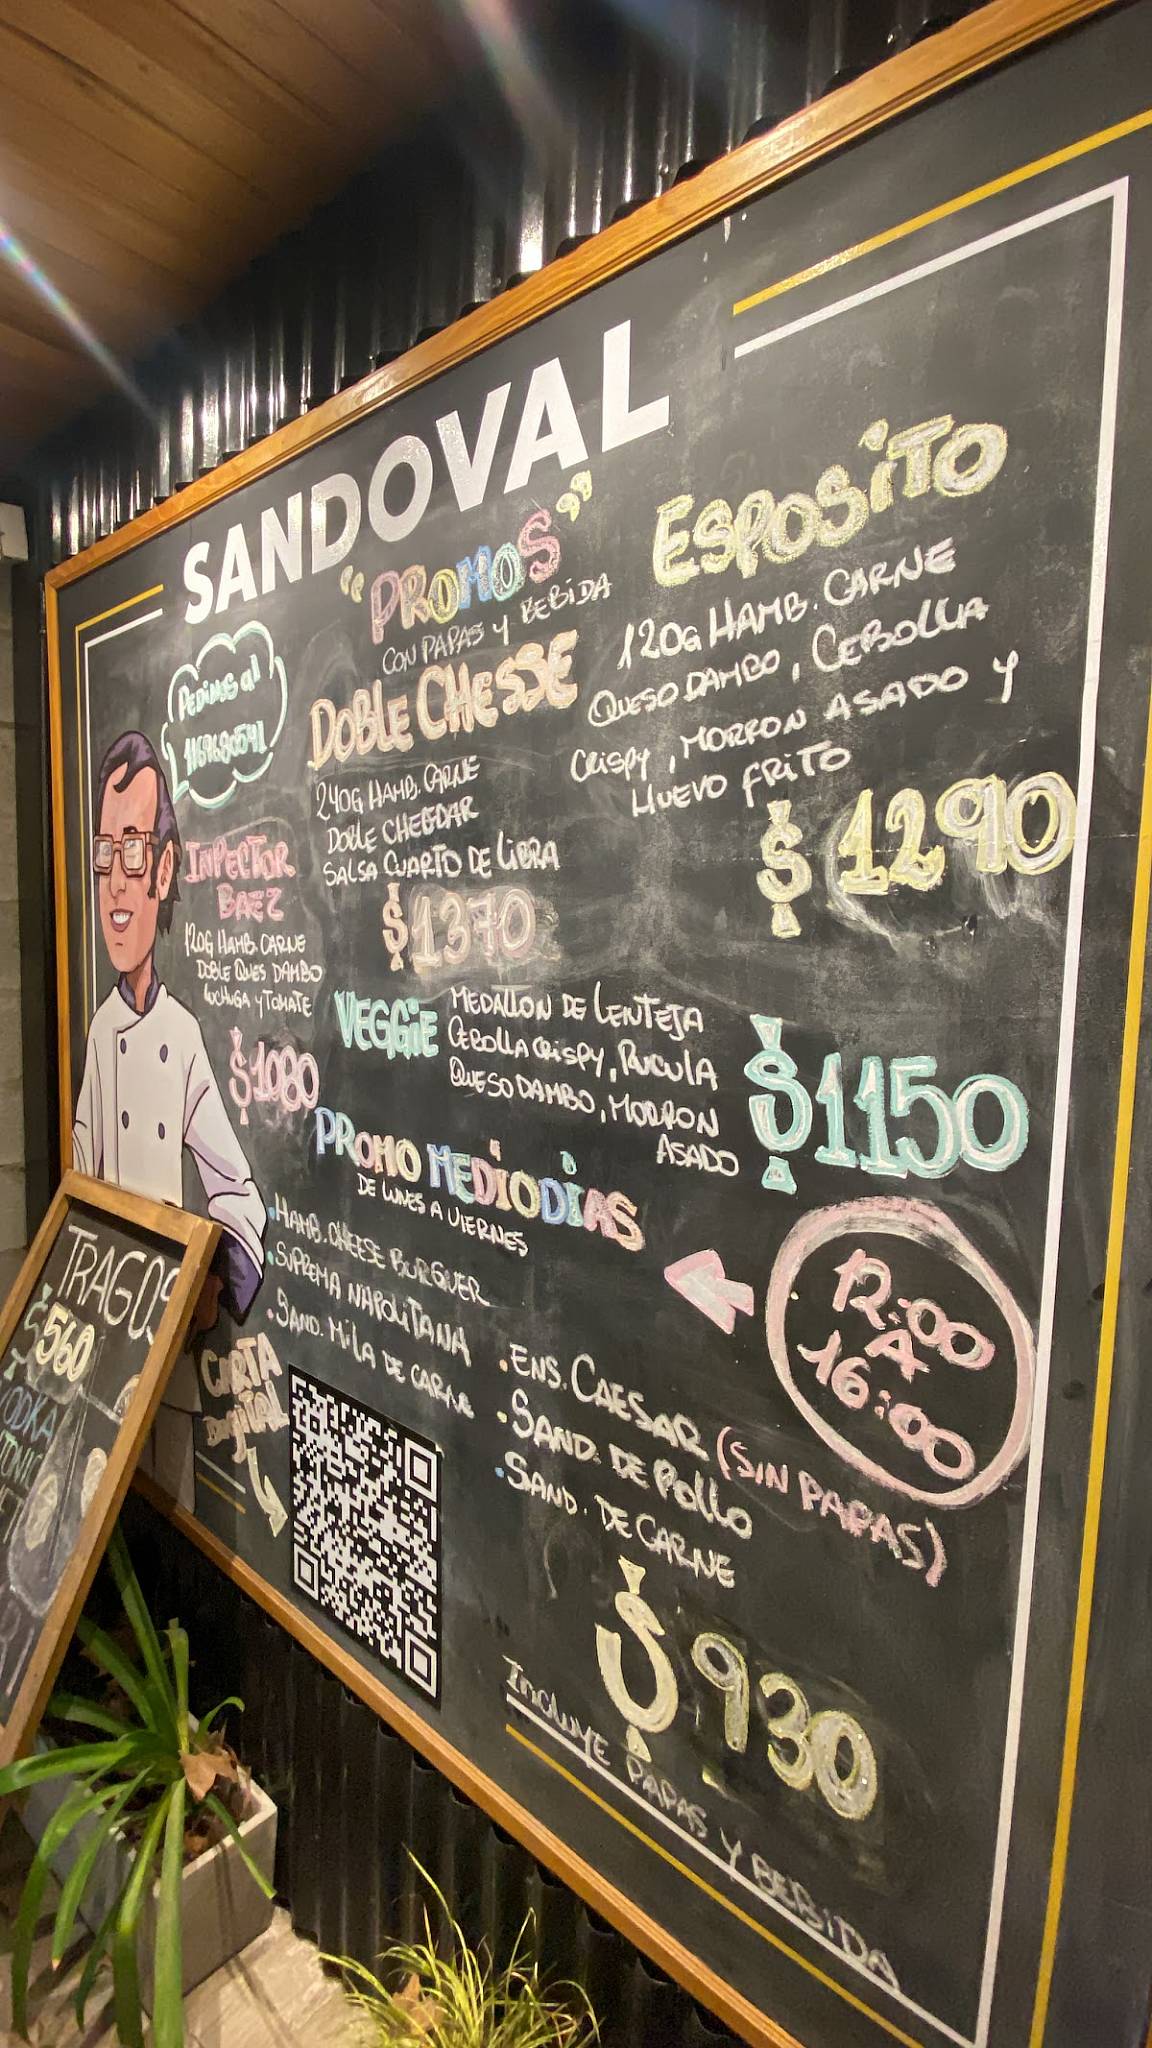 SANDOVAL
"PROMOS"
CON PAPAS Y BEBIDA
PEDINOS al
INPECTOR
BAEZ
120G HAMB. CARNE
DOBLE QUES DAMBO
LUCHUGA Y TOMATE
$1080
DOBLE CHESSE
240G HAMB. CARNE
DOBLE CHEDDAR
SALSA CUARTO DE LIBRA
$1370
ESPOSITO
120G HAMB. CARNE
QUESO DAMBO, CEBOLLA
CRISPY, MORRON ASADO Y
HUEVO FRITO
$1290
VEGGIE
MEDALLON DE LENTEJA
CEBOLLA CRISPY, RUCULA
QUESO DAMBO, MORRON
ASADO
$1150
PROMO MEDIODIAS
DE LUNES A VIERNES
12:00
A
16:00
• HAMB. CHEESE BURGUER
• SUPREMA NAPOLITANA
• SAND. MILA DE CARNE
• ENS. CAESAR (SIN PAPAS)
• SAND. DE POLLO
• SAND. DE CARNE
$930
INCLUYE PAPAS Y BEBIDA
CARTA
DIGITAL
TRAGOS
$560